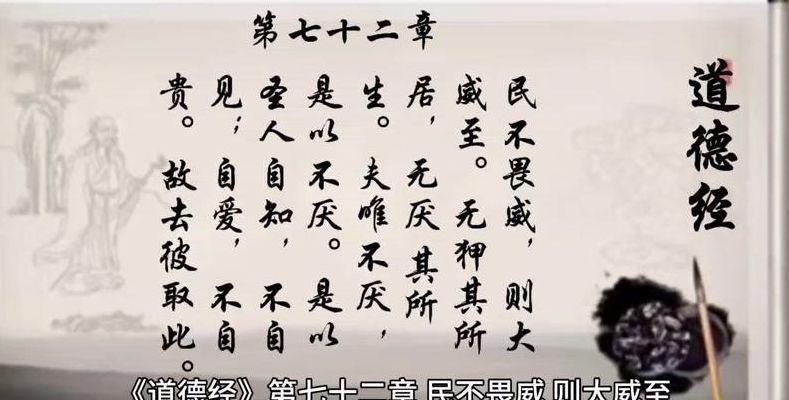 道德经
第七十二章
民不畏威，则大
威至。无狎其所
居，无厌其所
生。夫唯不厌，
是以不厌。是以
圣人自知，不自
见；自爱，不自
贵。故去彼取此。
《道德经》第七十二章 民不畏威 则大威至